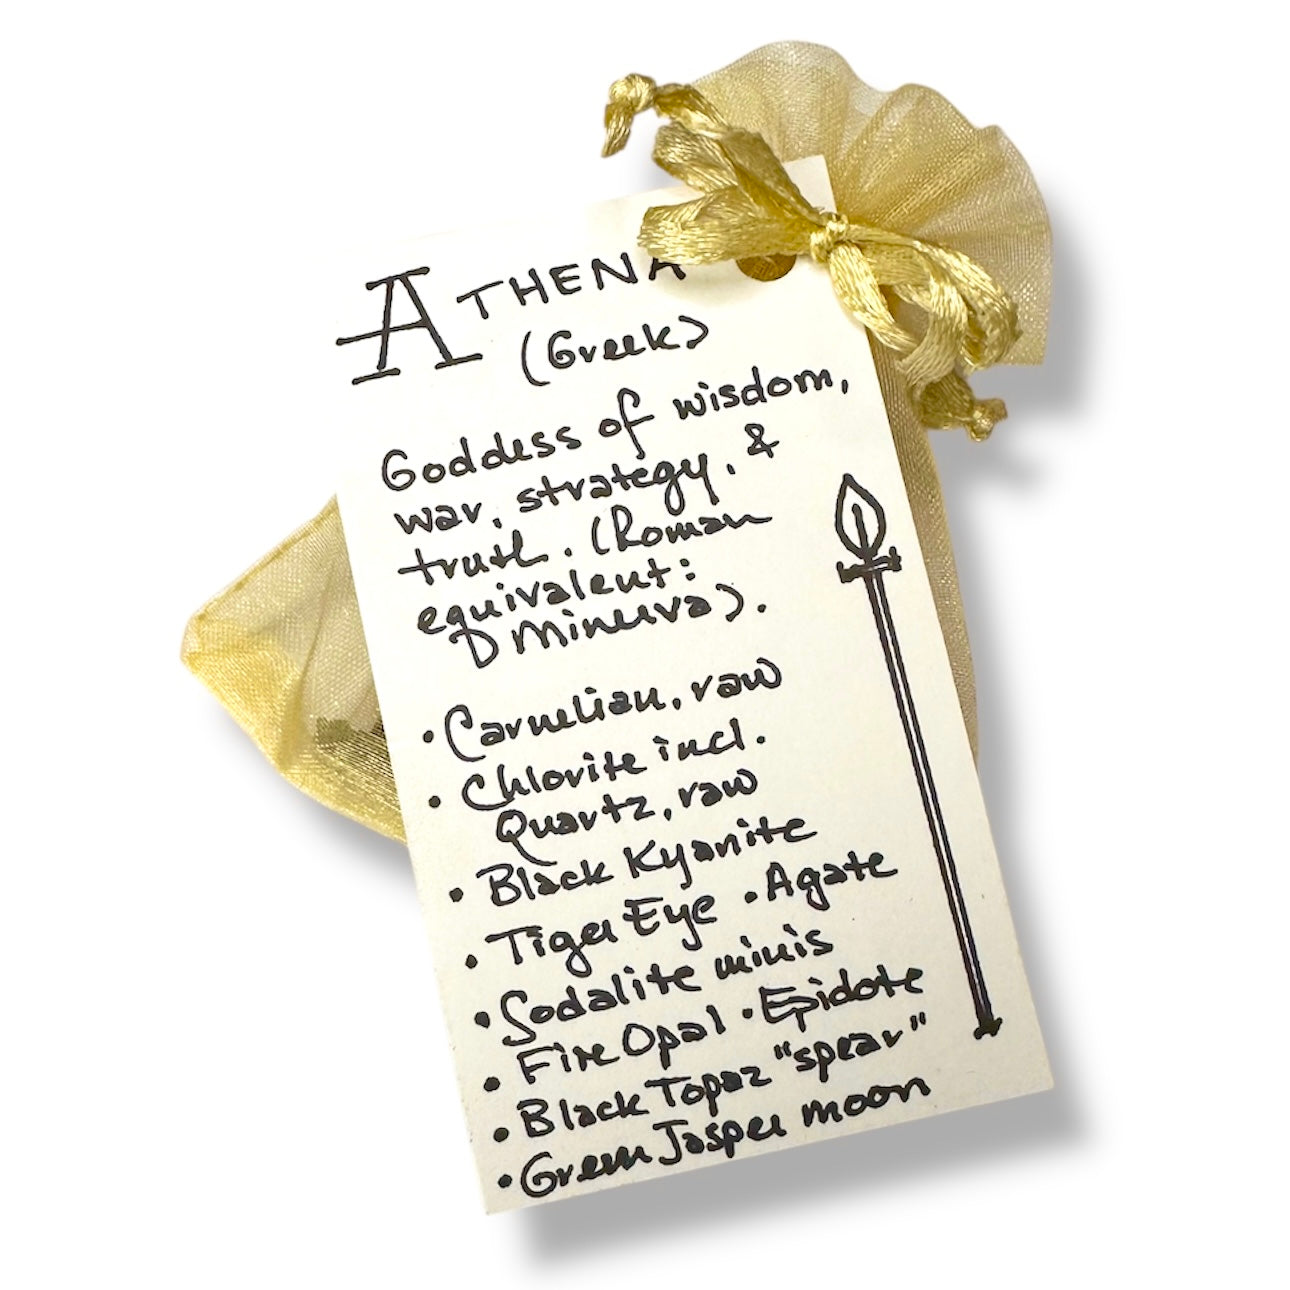 ATHENA
(Greek)
Goddess of wisdom,
war, strategy, &
truth. (Roman
equivalent:
Minerva).
• Carnelian, raw
• Chlorite incl.
Quartz, raw
• Black Kyanite
• Tiger Eye • Agate
• Sodalite minis
• Fire Opal • Epidote
• Black Topaz "spear"
• Green Jasper moon